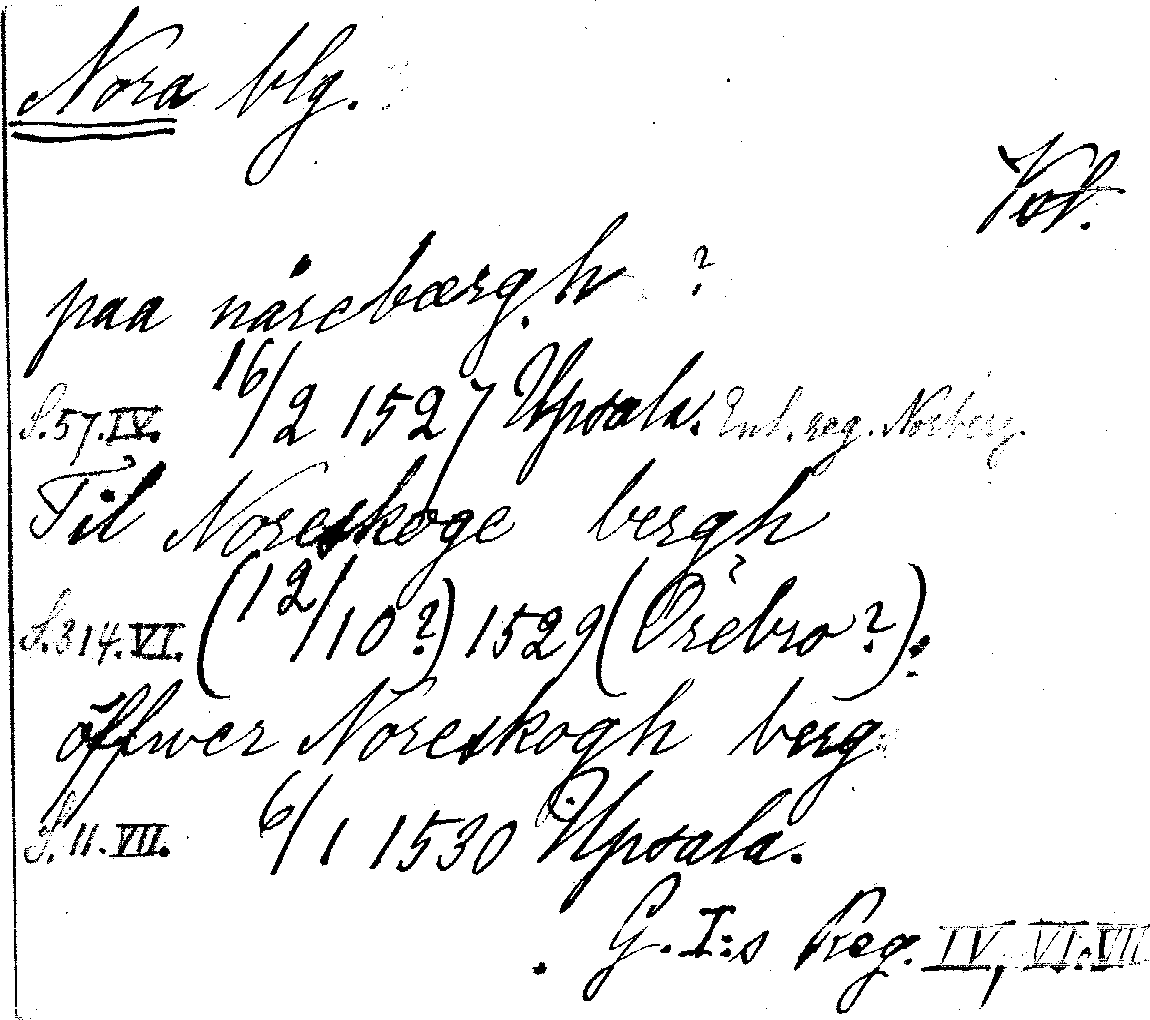 Nora blg.
Vstl.
paa nårebærgh ?
S.57.IV. 16/2 1527 Upsala. Enl. reg. Norberg.
Til Noreskoge bergh
S.314.VI. (12/10?) 1529 (Örebro?).
öffwer Noreskogh berg
S.11.VII. 6/1 1530 Upsala.
G.I:s Reg. IV, VI.VII